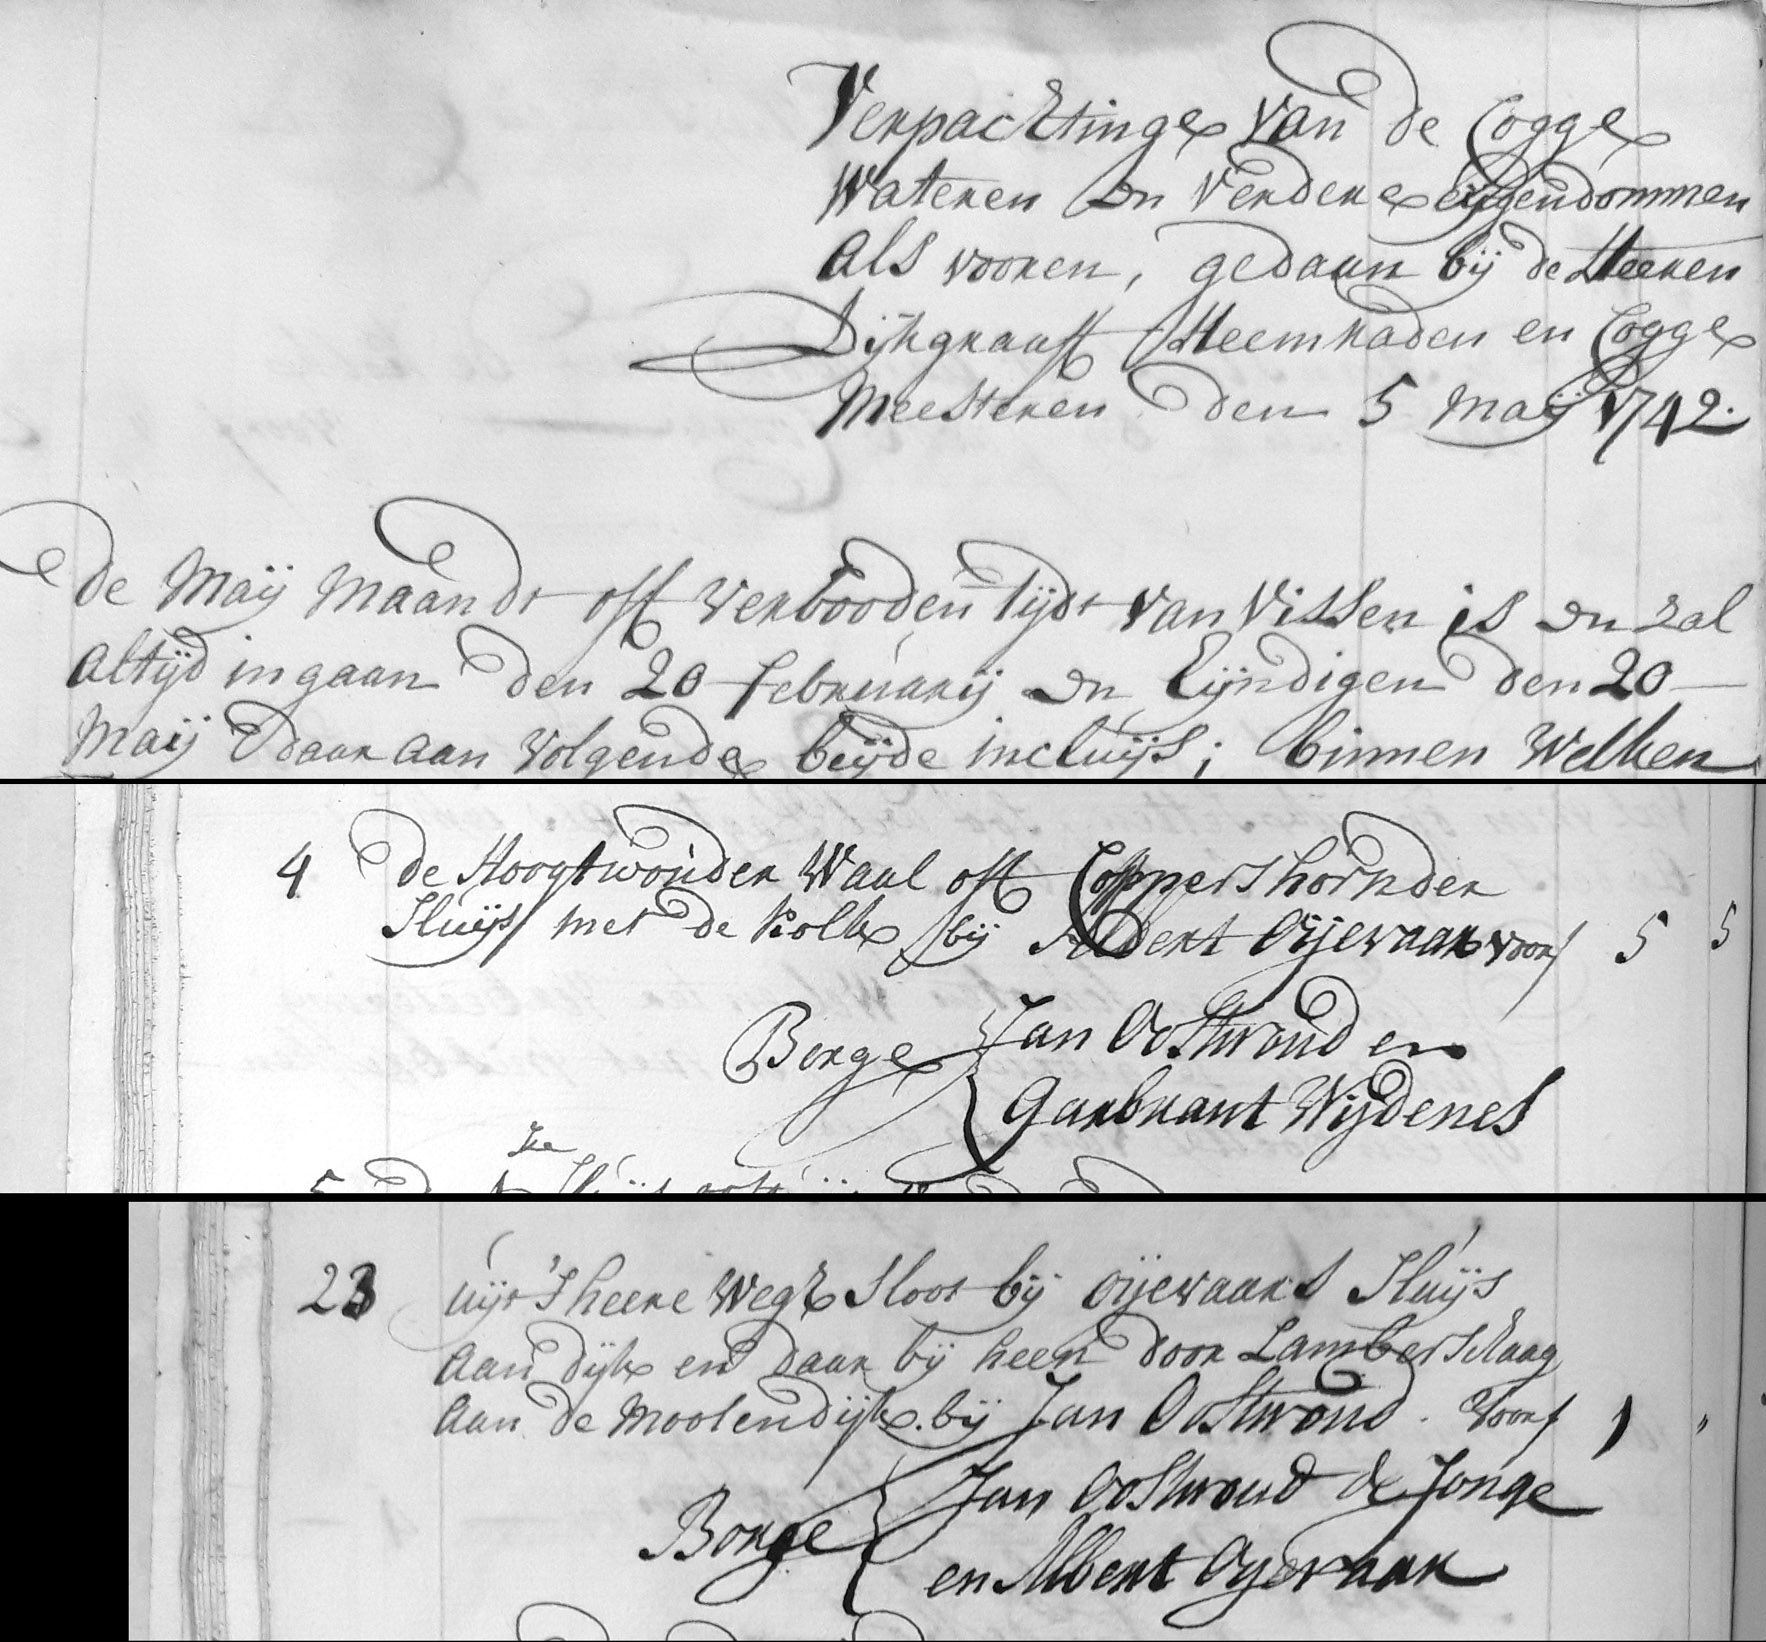 Verpachtinge van de Cogge
Wateren en verdere eijgendommen
Als vooren, gedaan bij de Heeren
Dijkgraaff Heemraden en Cogge
Meesteren den 5 Maij 1742.
de Maij Maandt off verbooden tijdt van Vissen is en zal
Altijd ingaan den 20 februarij en Eijndigen den 20
Maij daar aan volgende beijde incluijs; binnen Welken
4 de Hoogtwouder Waal off Coppershornder
Sluijs met de Kolk bij Albert Oijevaar voor f 5 5
Borge Jan Oostwoud en
Garbrant Wijdenes
23 uijt 's heere Wegs Sloot bij oijevaars Sluijs
Aan dijk en daar bij heen door Lambertschaag
Aan de Moolendijk. bij Jan Oostwoud. Voor f 1 "
Borge Jan Oostwoud de Jonge
en Albert Oijevaar